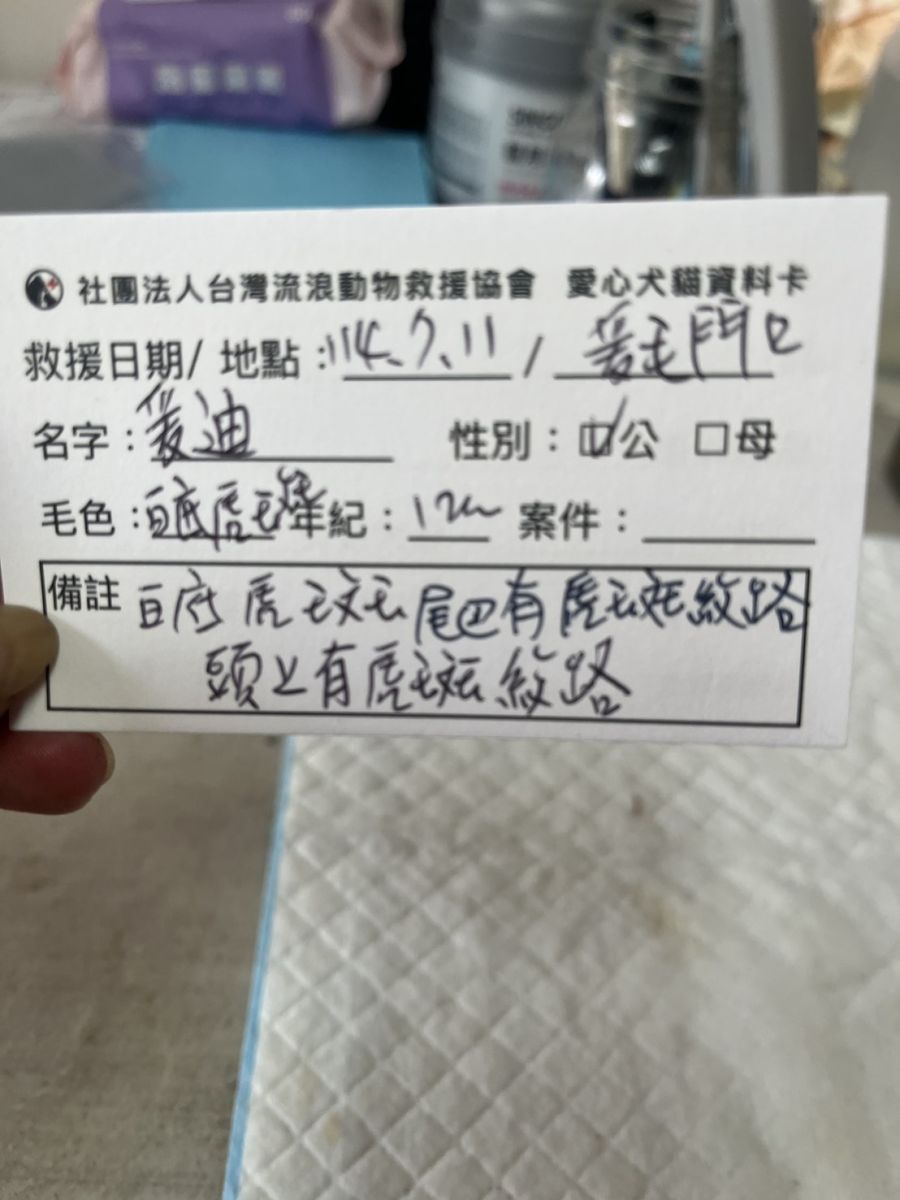 社團法人台灣流浪動物救援協會 愛心犬貓資料卡
救援日期/ 地點：114.7.11 / 門口
名字：愛迪 性別：☑公 □母
毛色：白底虎斑 年紀： 案件：
備註 白底虎斑 尾巴有虎斑紋路
頭上有虎斑紋路